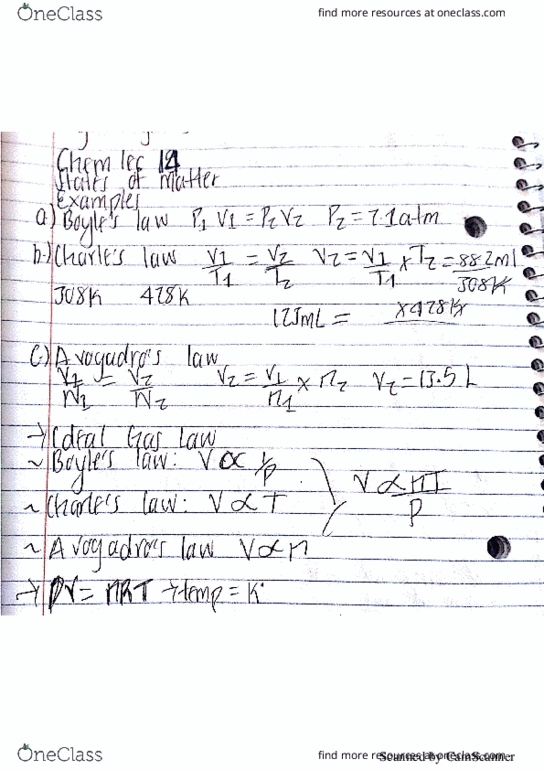 OneClass
find more resources at oneclass.com
Chem lec 14
States of matter
Examples
a) Boyle's law P₁ V1 = P₂ V2 P₂ = 7.1atm
b.) Charle's law V1/T1 = V2/T2 V2 = V1/T1 × T2 = 88.2ml/308K
308K 428K
123mL = ×428K
C.) Avogadro's law
V1/N1 = V2/N2 V2 = V1/n1 × n2 V2 = 13.5 L
→ Ideal Gas law
~ Boyle's law: V ∝ 1/P
V ∝ nT/P
~ Charle's law: V ∝ T
~ Avogadro's law V ∝ n
→ PV = nRT → temp = K
OneClass
find more resources at oneclass.com
Scanned by CamScanner